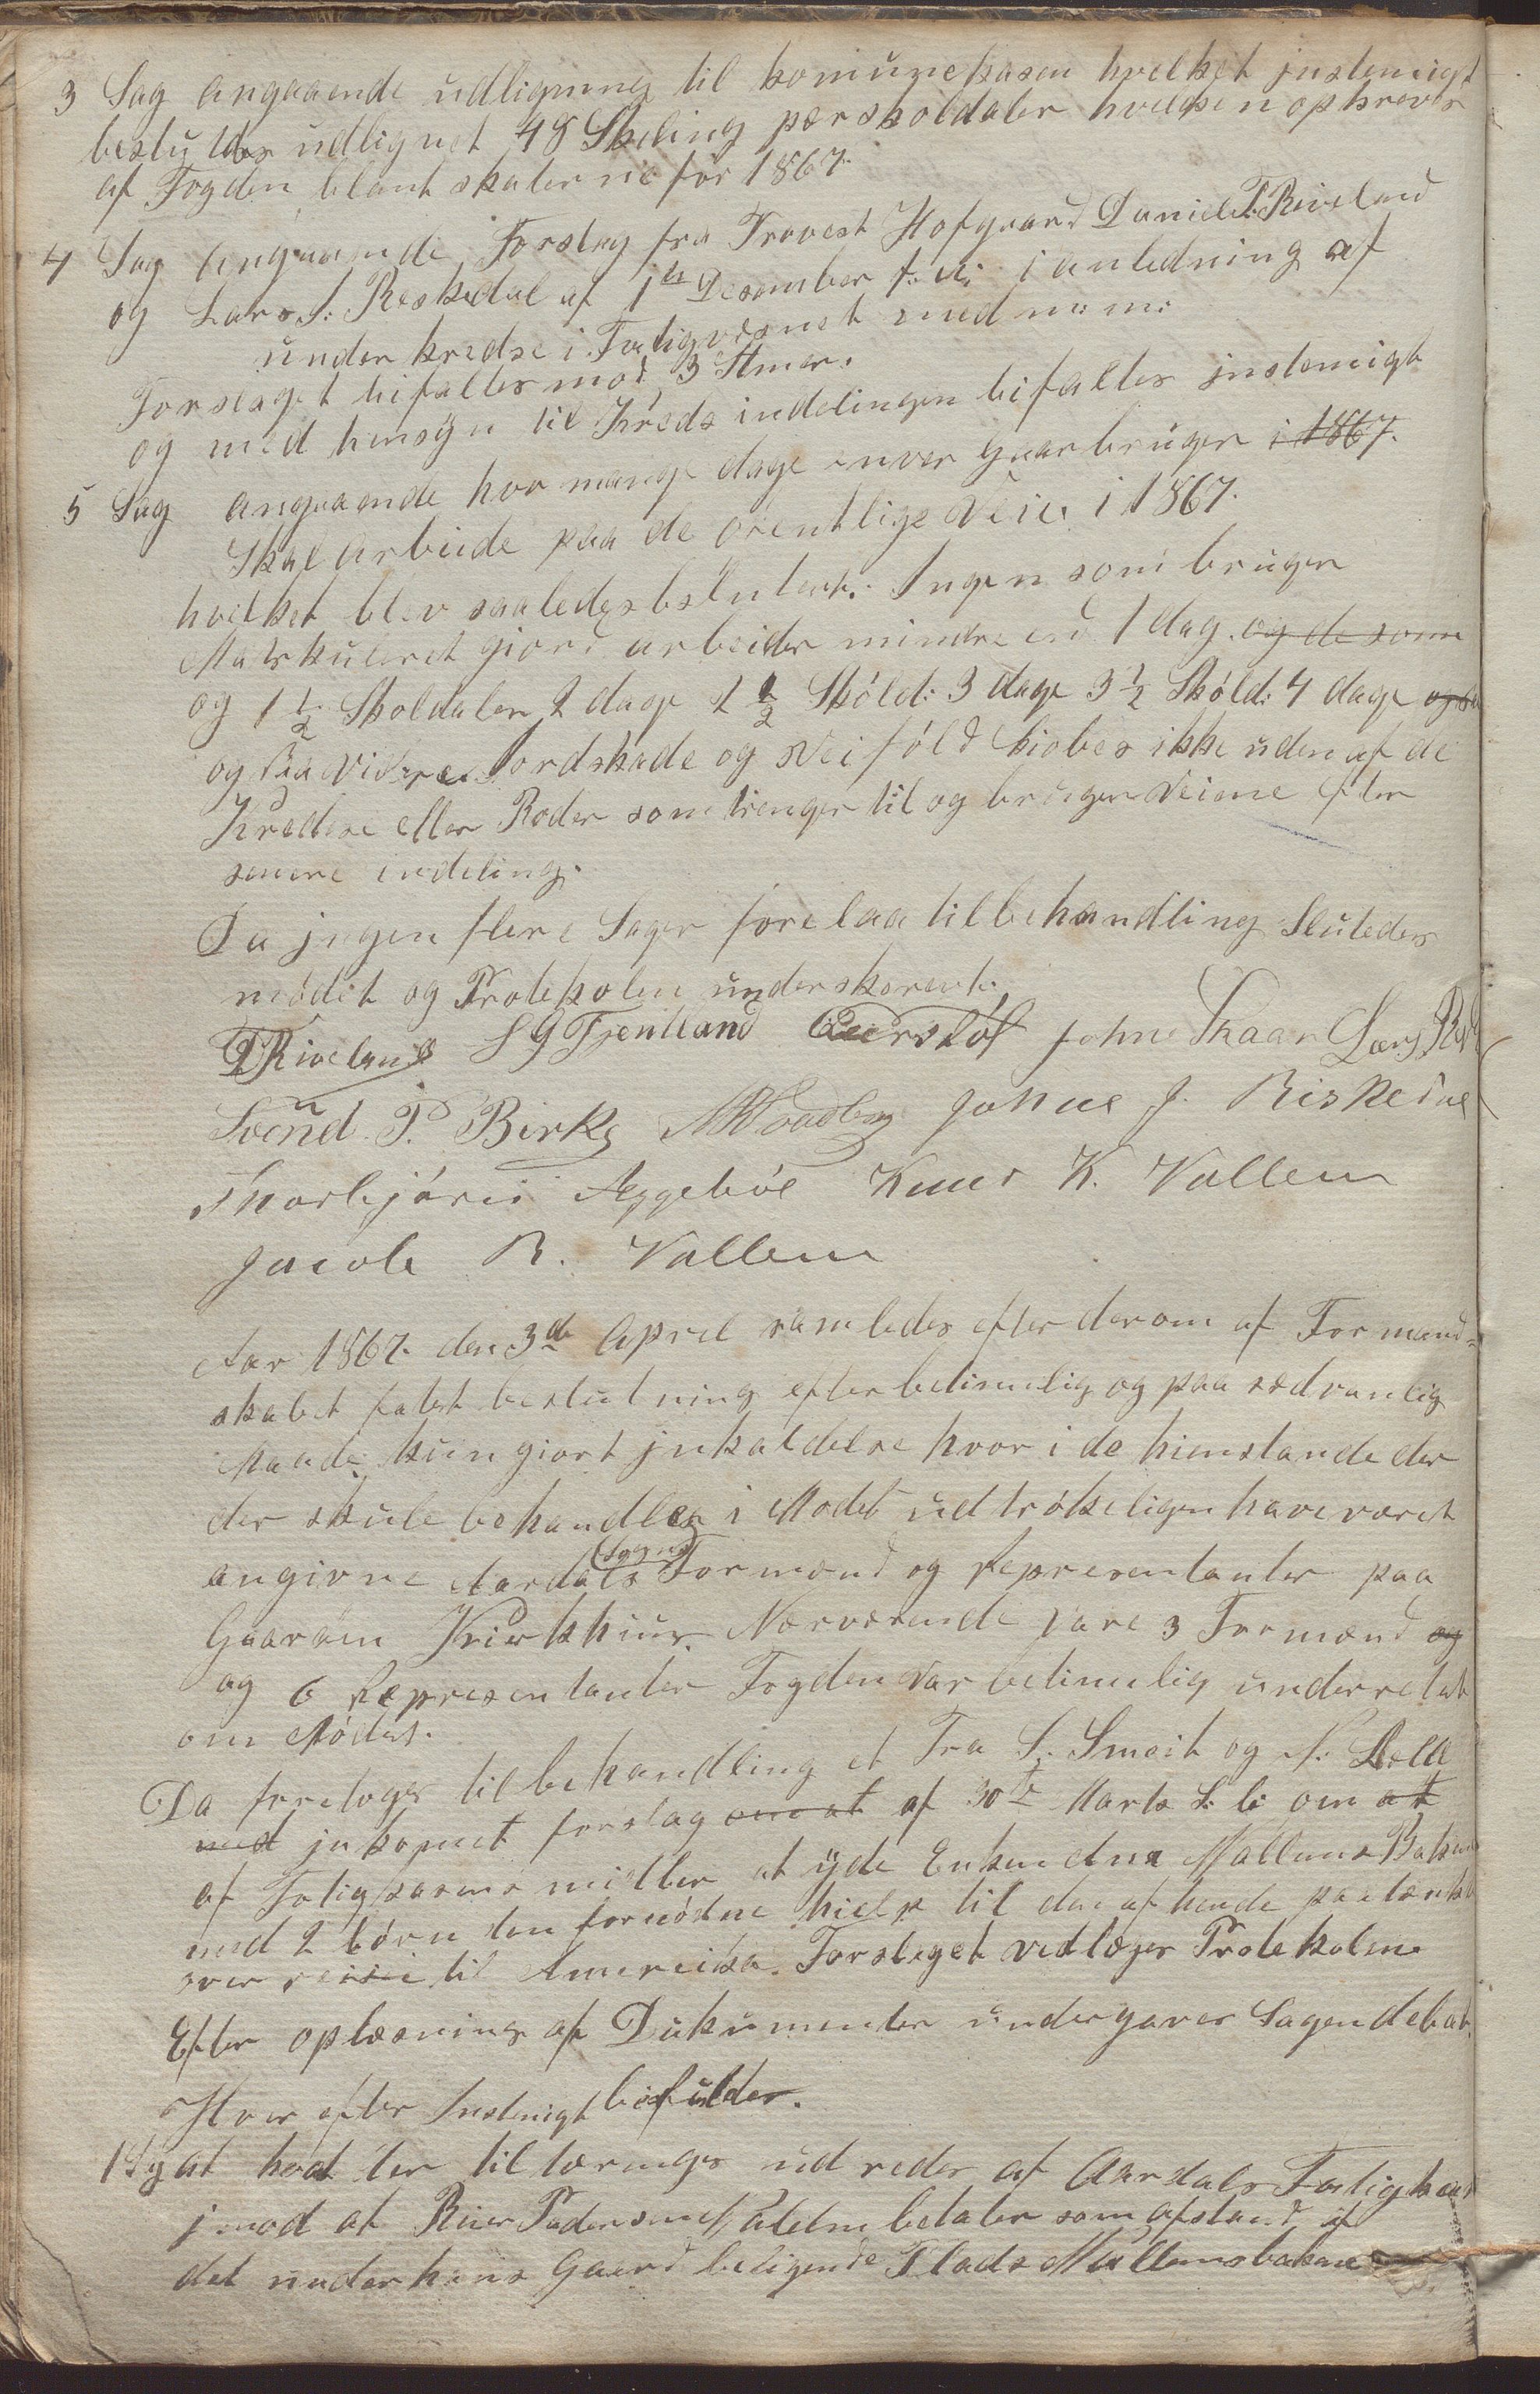 3 Sag angaaende udligning til komunekasen hvelket jnstemigt
beslutdes udlignet 48 Skeling pær skoldaler hvelken opkreves
af Fogden blant skaterne for 1867.
4 Sag angaaende Forslag fra Provest Hofgaard Daniel T. Riveland
og Lars J: Reskedal af 1ste Desember f: a: i anledning af
under kredse i Fatigvesnet med m: m:
Forslaget bifaltes mod 3 Stmer.
og med hensyn til Kreds indelingen bifaltes jnstemigt
5 Sag angaaende hvor mange dage enver gaarbruger i 1867.
Skal arbeide paa de orentlige Veie i 1867.
hvelket blev saaledes beslutert: Ingen som bruger
Matrkuleret gjord arbeider mindre end 1 dag. og de som
og 1 1/2 Skoldaler 2 dage 2 1/2 Skóld: 3 dage 3 1/2 Skóld: 4 dage og saa
og saa videre. Jordskade og Veifóld kiobes ikke uden af de
Kredse eller Roder som trenger til og bruger Veiene efter
senere indeling.
Da jngen flere Sager forelaa til behandling Sluteders
mødet og Protekolen underskrevet.
T Riveland S G Tjentland John Skaar Lars
Svend P. Birke Johne J. Riskedal
Thorbjórn Aggebóe Knud K. Vallem
Jacob R. Vallem
Aar 1867. den 3de April samledes efter derom af Formand-
skabet fatet beslutning efter betimelig og paa sedvanlig
Maade kungiort jnkaldelse hvor i de hienstande der
der skule behandles i Mødet udtrókeligen have været
angivne Aardals (Sogns) Formænd og Representanter paa
Gaarden Kirkhus. Nærværende vare 3 Formænd og
og 6 Representanter Fogden var betimelig underretet
om Mødet.
Da foretoges til behandling et Fra S. Smeit og
med jnkomet forslag om at af 30te Marts d: å: om at
af Fatigkasens midler at yde Enken Mallene Baken
med 2 børn den fornødne hielp til den af hende paatænkte
over reise til Amereika. Forslaget vedlæges Protekolen
Efter oplæsning af Dukumenter undergaves Sagen debat.
Hvor efter Jnstemigt bifaldes.
1 Sag at hvad der tiltrænges ud redes af Aardals Fatigkase
jmod at Rier Pedersen betaler som afstand af
det under hans Gaard beligende Plads Mallensbakene